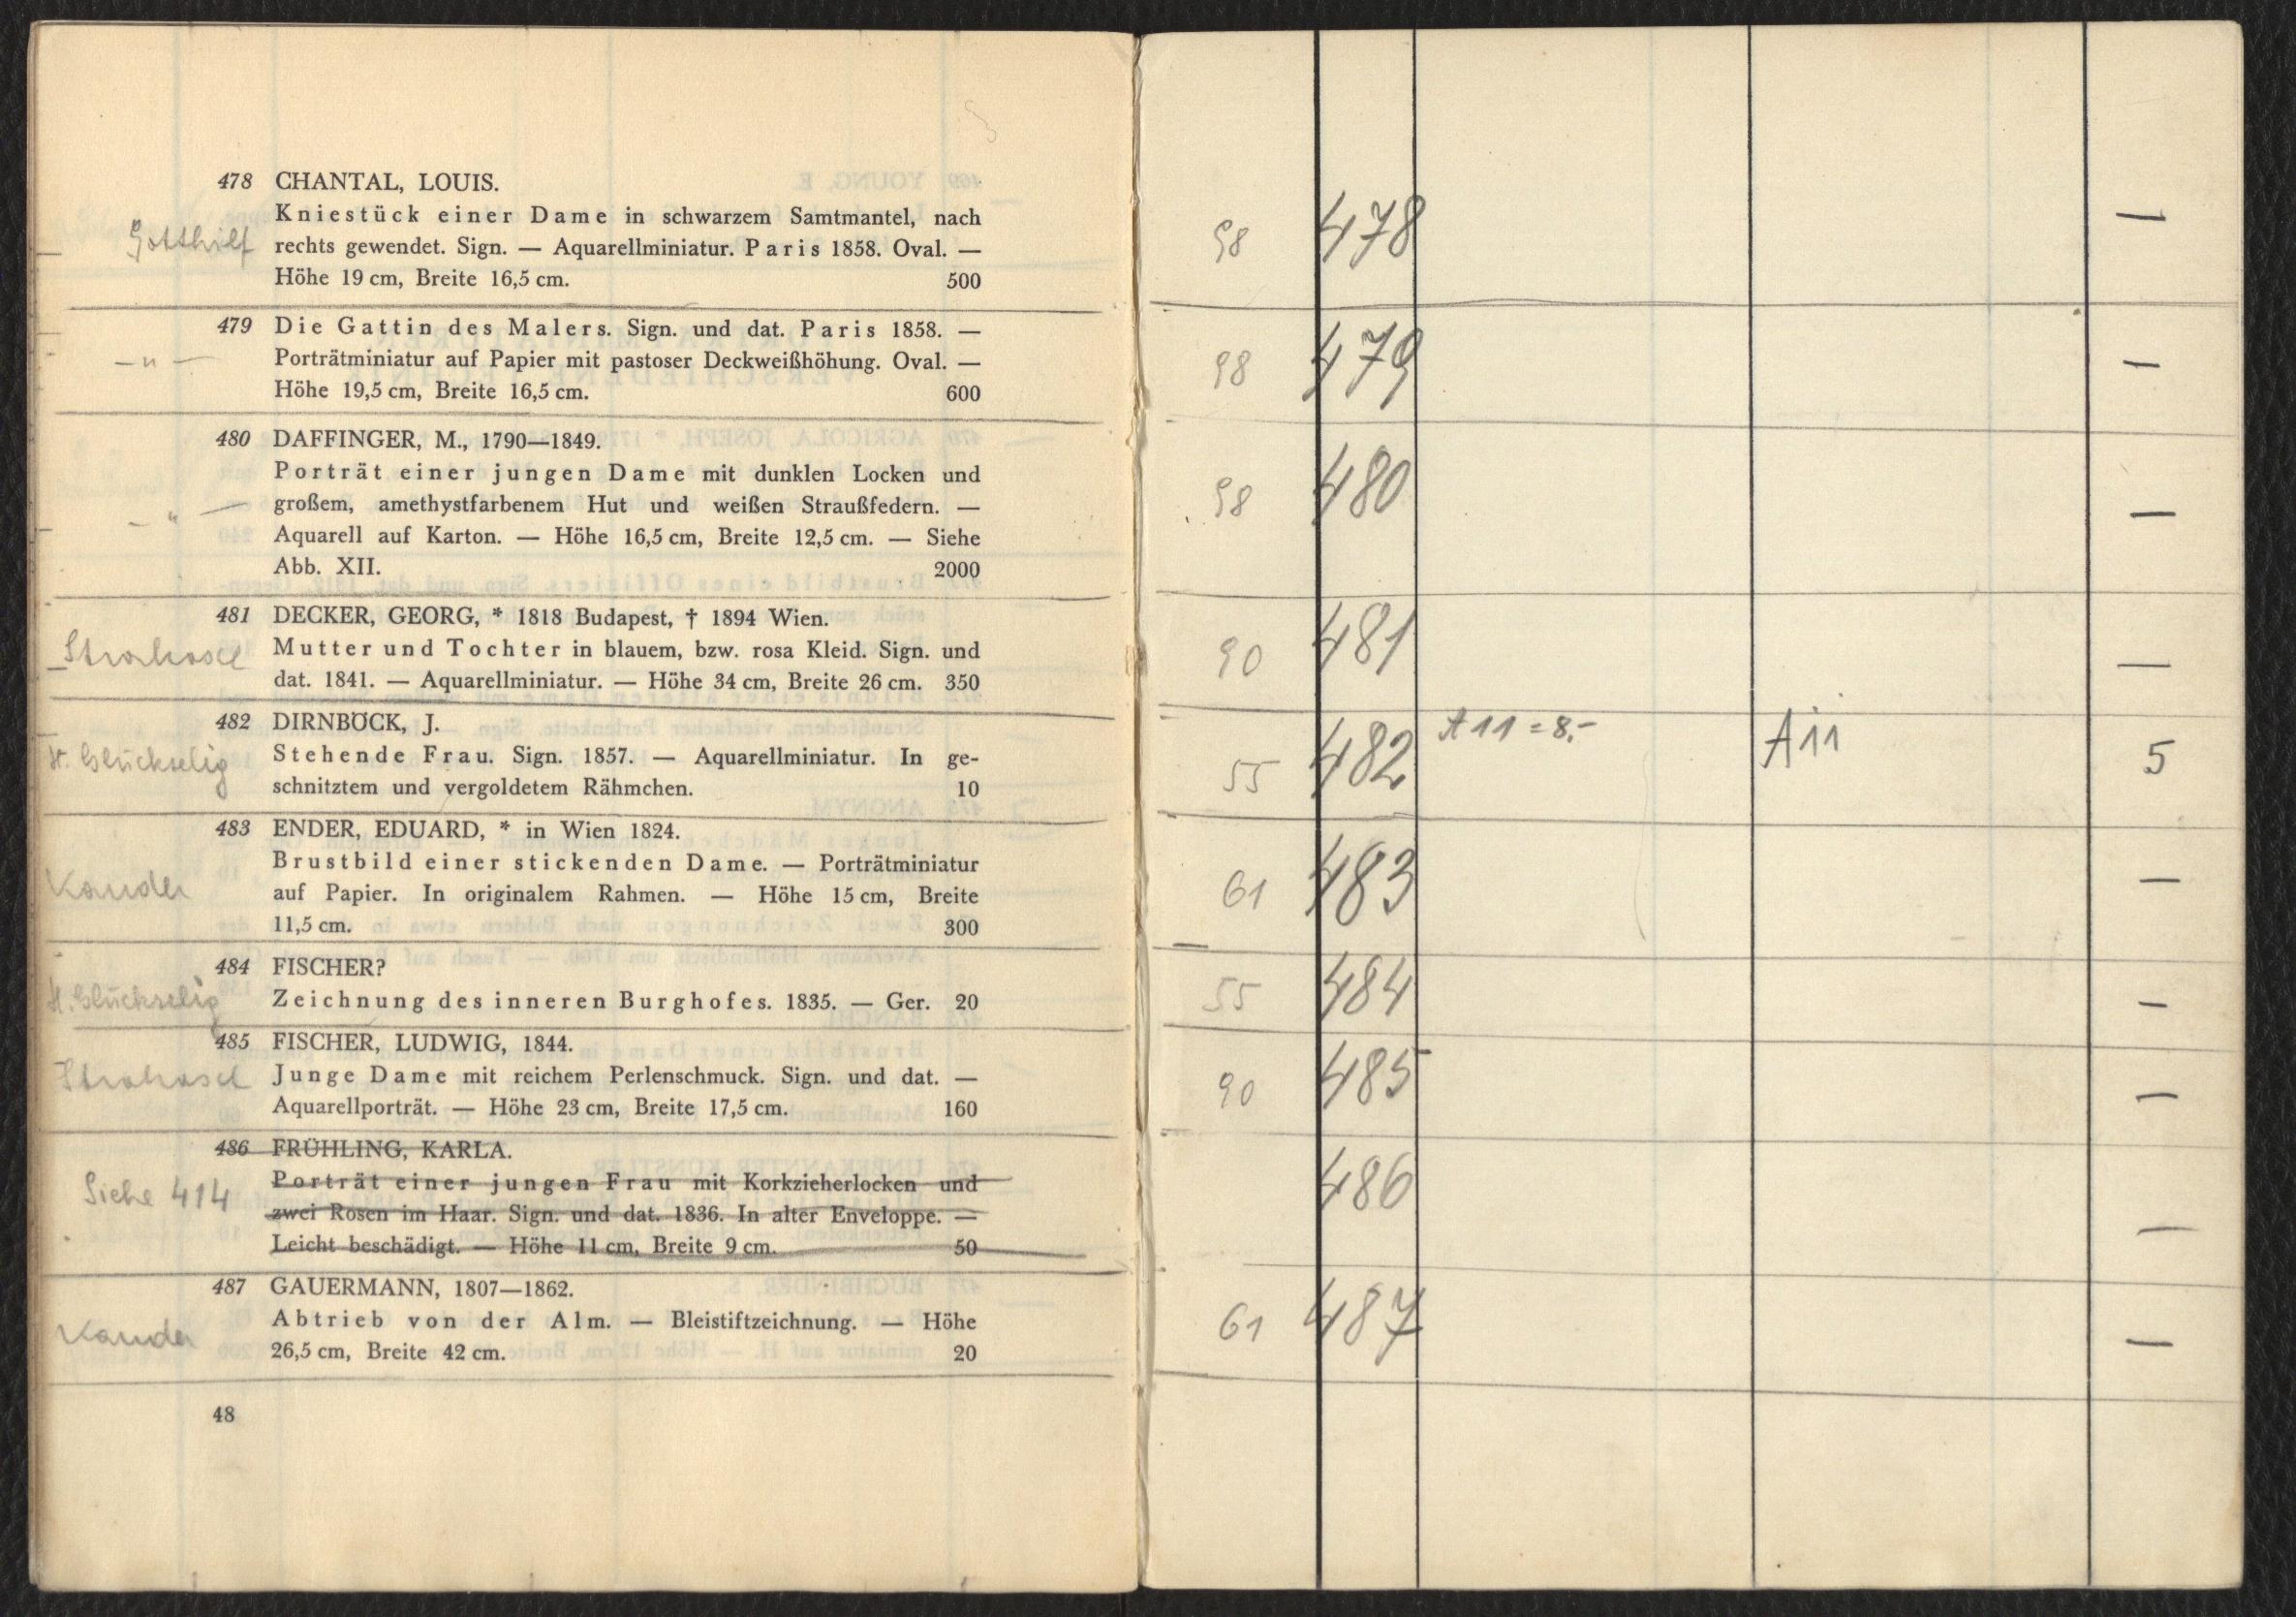 478 CHANTAL, LOUIS.
Kniestück einer Dame in schwarzem Samtmantel, nach
Gotthilf rechts gewendet. Sign. — Aquarellminiatur. Paris 1858. Oval. —
Höhe 19 cm, Breite 16,5 cm. 500
479 Die Gattin des Malers. Sign. und dat. Paris 1858. —
— " — Porträtminiatur auf Papier mit pastoser Deckweißhöhung. Oval. —
Höhe 19,5 cm, Breite 16,5 cm. 600
480 DAFFINGER, M., 1790—1849.
Porträt einer jungen Dame mit dunklen Locken und
— " — großem, amethystfarbenem Hut und weißen Straußfedern. —
Aquarell auf Karton. — Höhe 16,5 cm, Breite 12,5 cm. — Siehe
Abb. XII. 2000
481 DECKER, GEORG, * 1818 Budapest, † 1894 Wien.
Mutter und Tochter in blauem, bzw. rosa Kleid. Sign. und
dat. 1841. — Aquarellminiatur. — Höhe 34 cm, Breite 26 cm. 350
482 DIRNBÖCK, J.
H. Glückselig Stehende Frau. Sign. 1857. — Aquarellminiatur. In ge-
schnitztem und vergoldetem Rähmchen. 10
483 ENDER, EDUARD, * in Wien 1824.
Brustbild einer stickenden Dame. — Porträtminiatur
auf Papier. In originalem Rahmen. — Höhe 15 cm, Breite
11,5 cm. 300
484 FISCHER?
H. Glückselig Zeichnung des inneren Burghofes. 1835. — Ger. 20
485 FISCHER, LUDWIG, 1844.
Junge Dame mit reichem Perlenschmuck. Sign. und dat. —
Aquarellporträt. — Höhe 23 cm, Breite 17,5 cm. 160
486 FRÜHLING, KARLA.
Siehe 414 Porträt einer jungen Frau mit Korkzieherlocken und
zwei Rosen im Haar. Sign. und dat. 1836. In alter Enveloppe. —
Leicht beschädigt. — Höhe 11 cm, Breite 9 cm. 50
487 GAUERMANN, 1807—1862.
Abtrieb von der Alm. — Bleistiftzeichnung. — Höhe
26,5 cm, Breite 42 cm. 20
48
98 478 —
98 479 —
98 480 —
90 481 —
55 482 A 11 = 8.- A11 5
61 483 —
55 484 —
90 485 —
486 —
61 487 —